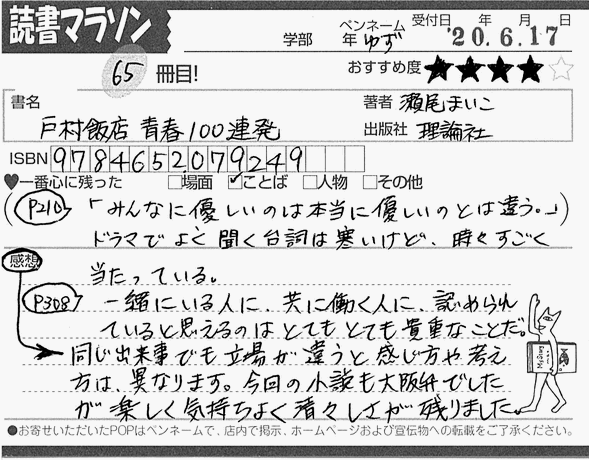 読書マラソン
学部 年 ペンネーム ゆず 受付日 年 月 日 '20.6.17
65 冊目! おすすめ度 ★★★★☆
書名 著者 瀬尾まいこ
戸村飯店 青春100連発 出版社 理論社
ISBN 9784652079249
♥一番心に残った □場面 ☑ことば □人物 □その他
(P210 「みんなに優しいのは本当に優しいのとは違う。」)
ドラマでよく聞く台詞は寒いけど、時々すごく
感想 当たっている。
P308 一緒にいる人に、共に働く人に、認められ
ていると思えるのはとてもとても貴重なことだ。
同じ出来事でも立場が違うと感じ方や考え
方は、異なります。今回の小説も大阪弁でした
が楽しく気持ちよく清々しさが残りました。
●お寄せいただいたPOPはペンネームで、店内で掲示、ホームページおよび宣伝物への転載をご了承ください。